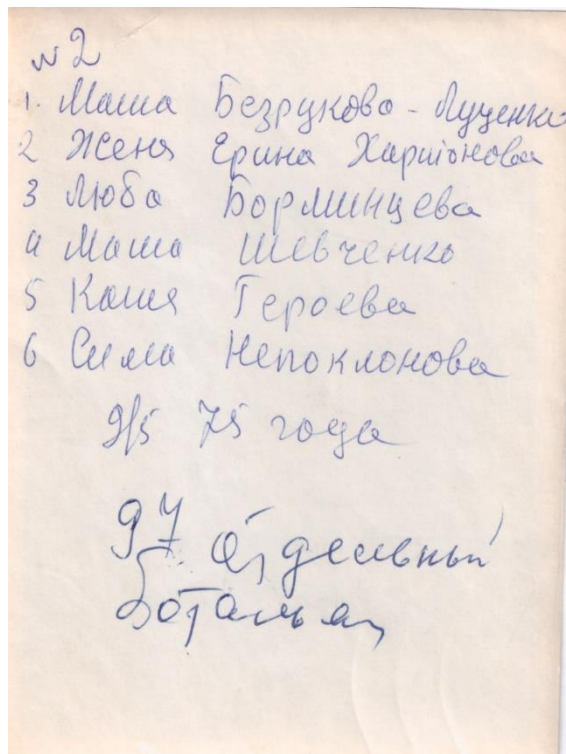 №2
1. Маша Безрукова-Луценко
2 Женя Ерина Харитонова
3 Люба Борминцева
4 Маша Шевченко
5 Катя Героева
6 Сима Непоклонова
9/5 75 года
97 отдельный
ботальон